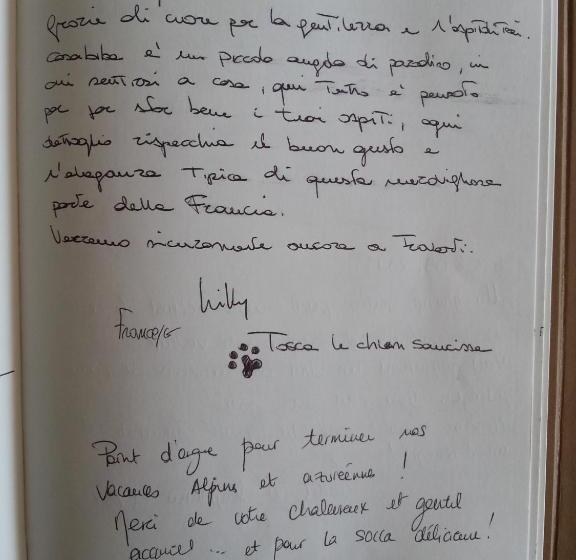 Grazie di cuore per la gentilezza e l'ospitalità.
casabiba è un piccolo angolo di paradiso, in
cui sentirsi a casa, qui tutto è pensato
per far star bene i tuoi ospiti, ogni
dettaglio rispecchia il buon gusto e
l'eleganza tipica di questa meravigliosa
parte della Francia.
Verremo sicuramente ancora a trovarti.
Willy
Francesca
Tosca le chien saucisse
Point d'orgue pour terminer nos
vacances Alpines et azuréennes !
Merci de votre chaleureux et gentil
accueil... et pour la socca délicieuse !